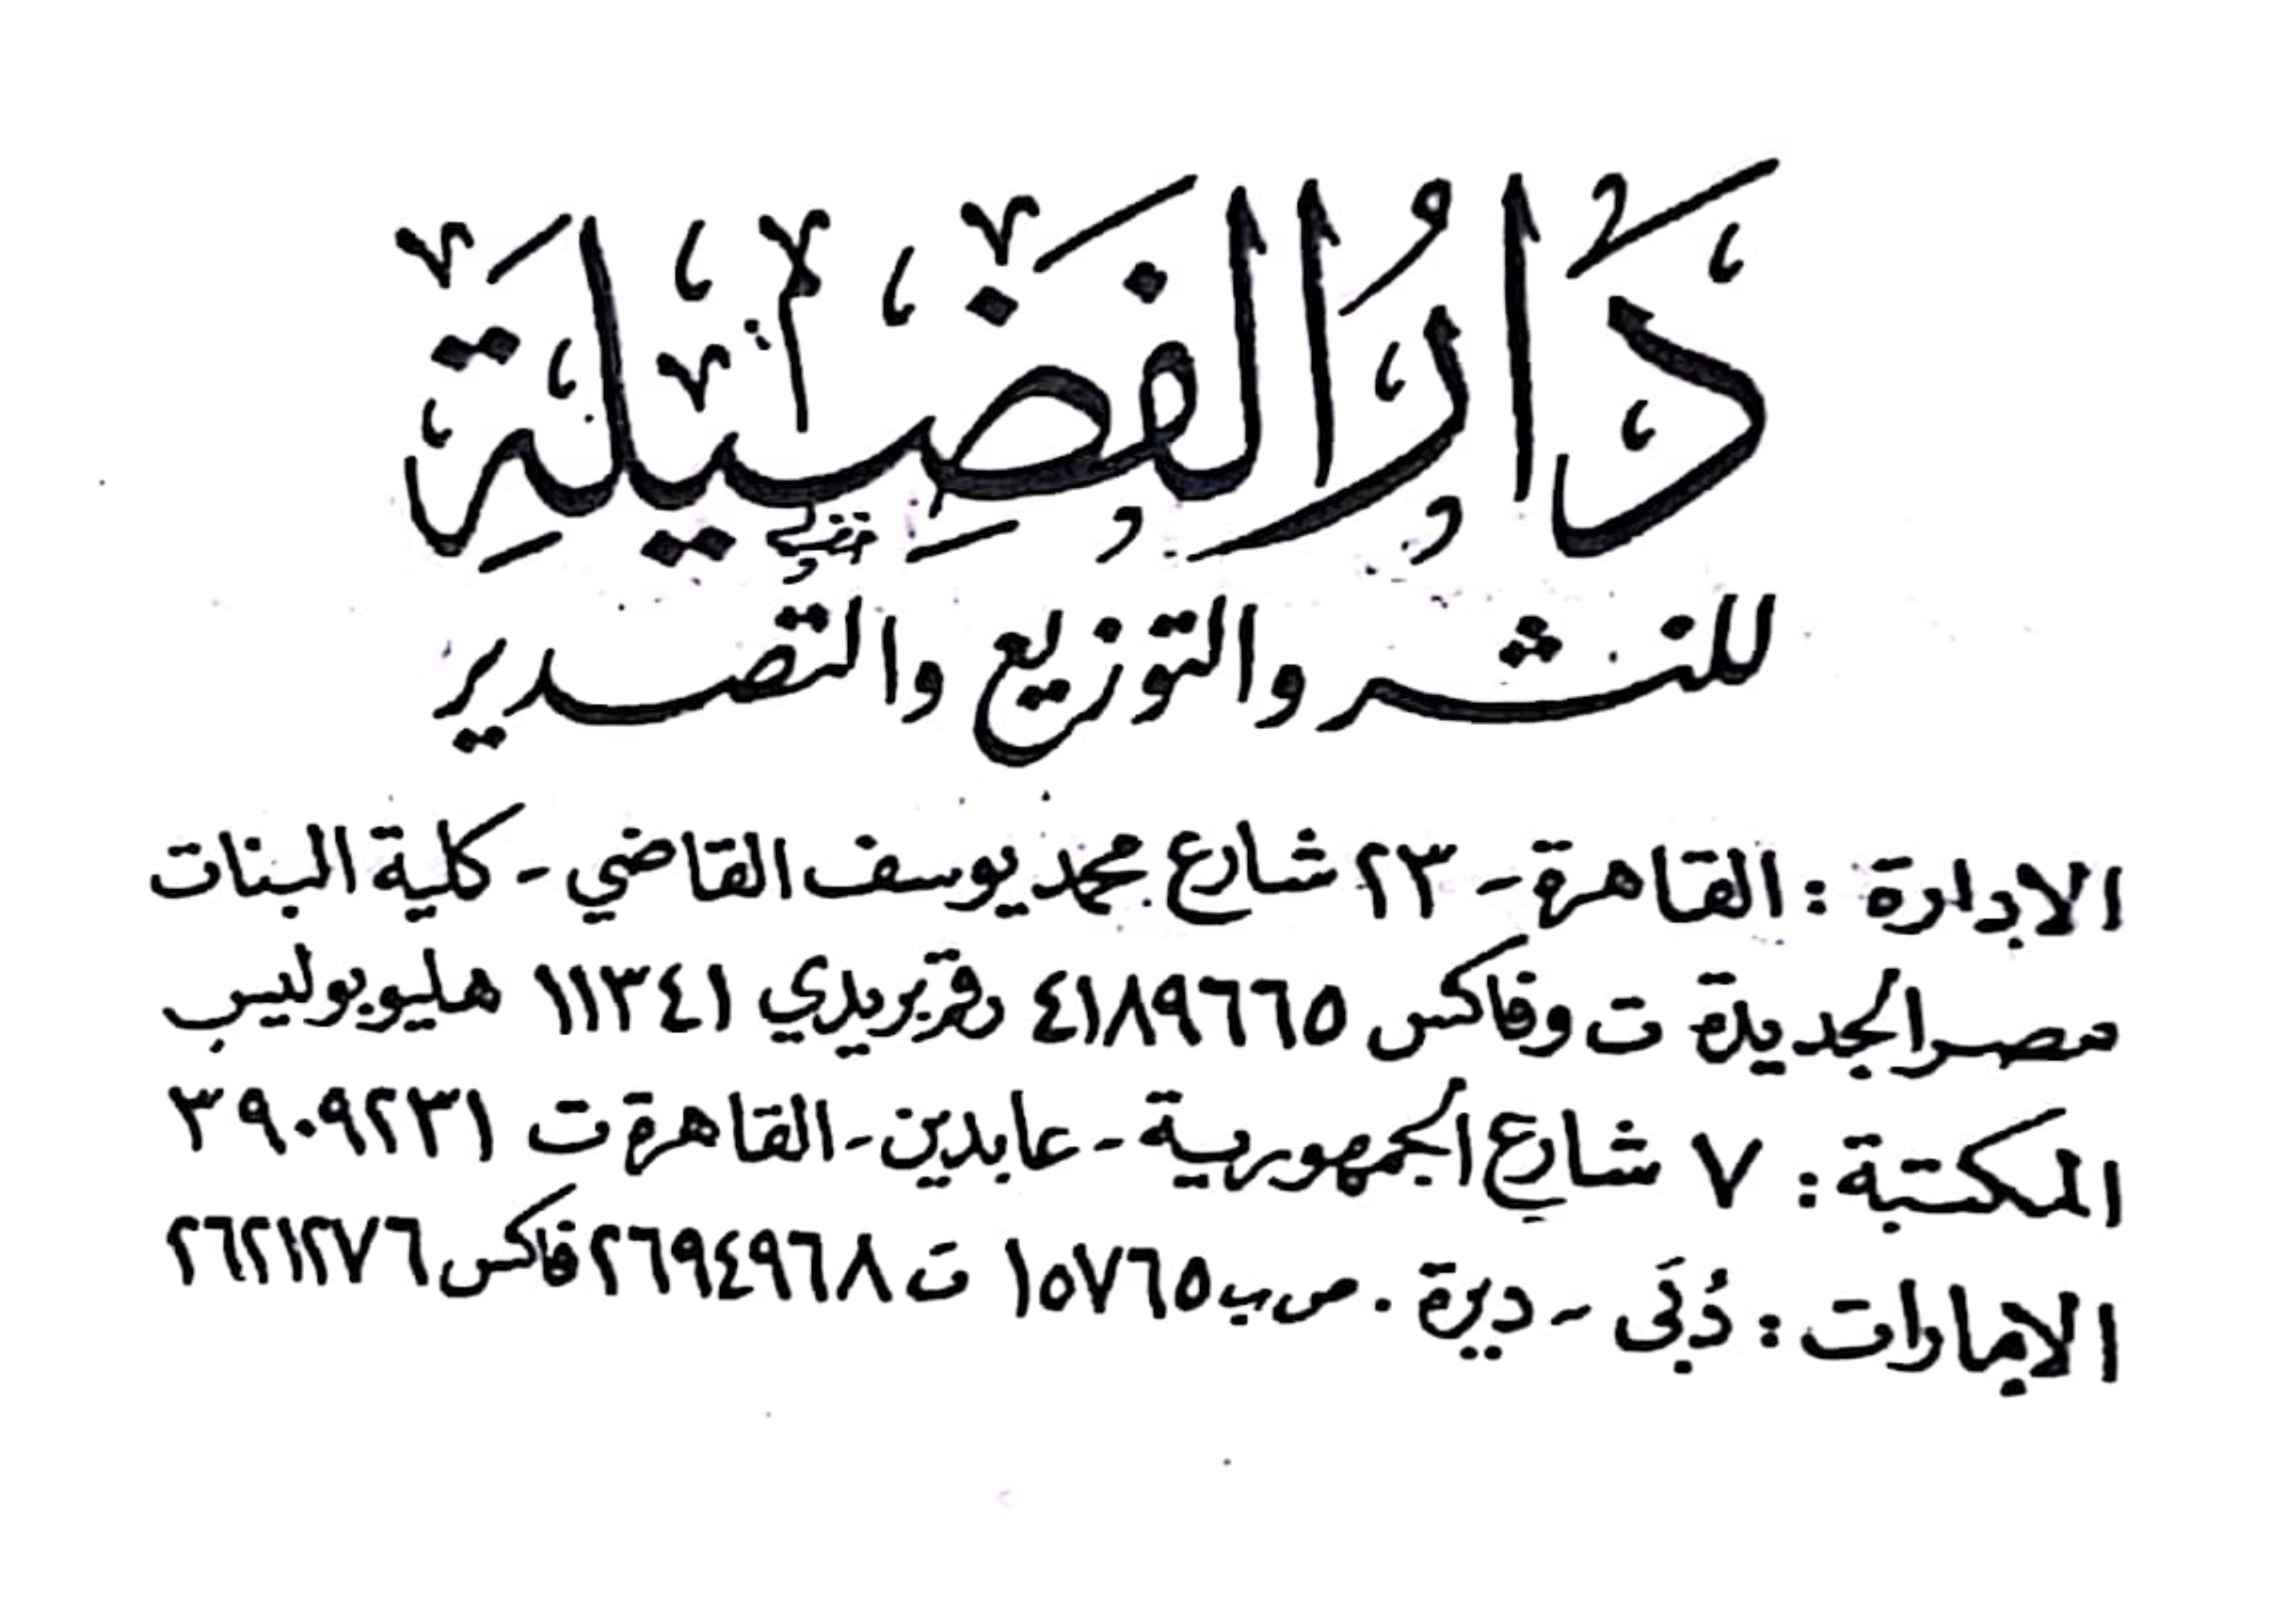 دَارُ الفَضِيلَةِ
للنشر والتوزيع والتصدير
الإدارة : القاهرة - ٢٣ شارع محمد يوسف القاضي - كلية البنات
مصر الجديدة ت وفاكس ٤١٨٩٦٦٥ رقم بريدي ١١٣٤١ هليوبوليس
المكتبة : ٧ شارع الجمهورية - عابدين - القاهرة ت ٣٩٠٩٢٣١
الإمارات : دُبَي - ديرة . ص ب ١٥٧٦٥ ت ٢٦٩٤٩٦٨ فاكس ٢٦٢١٢٧٦